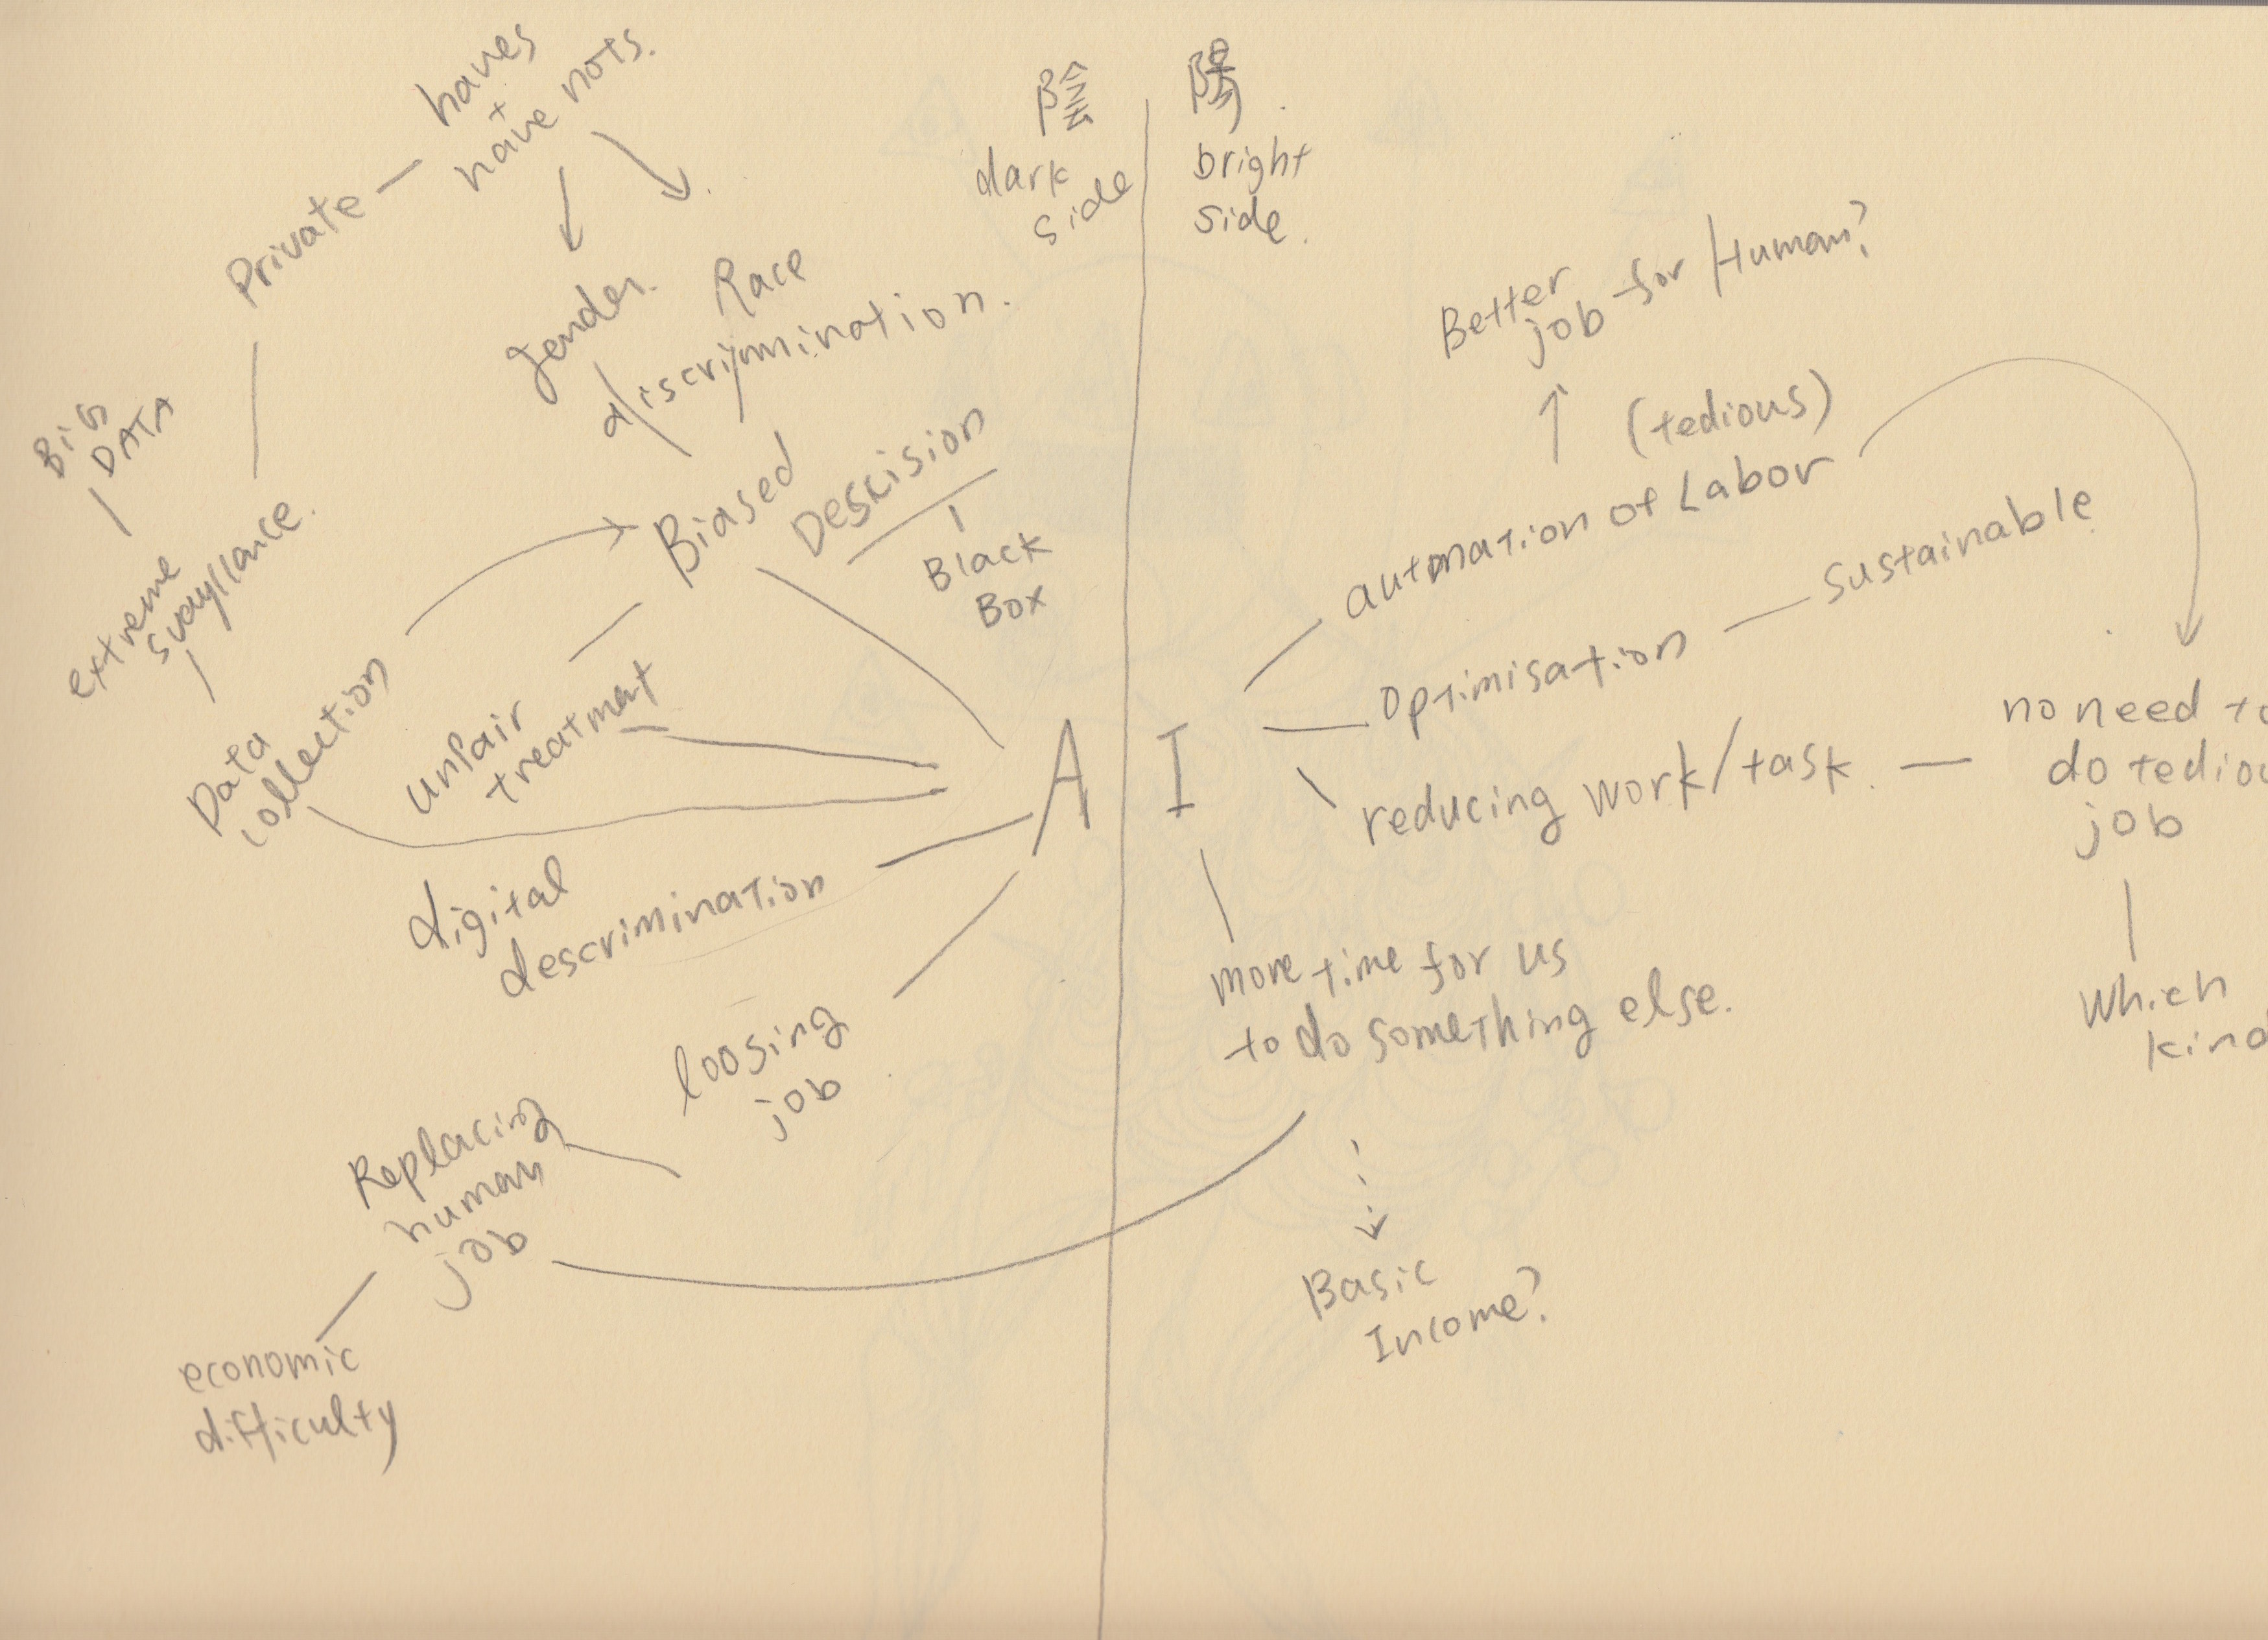 haves
+
have nots.
Private
陰
dark
side
陽
bright
side.
gender.
Race
discrimination.
BiG
DATA
extreme
Biased
Descision
Black
Box
Data
collection
unfair
treatment
digital
descrimination
loosing
job
Replacing
human
job
economic
difficulty
A I
Better
job for Human?
(tedious)
automation of Labor
Optimisation
sustainable
reducing work/task.
no need to
do tediou
job
which
kind
more time for us
to do something else.
Basic
Income?